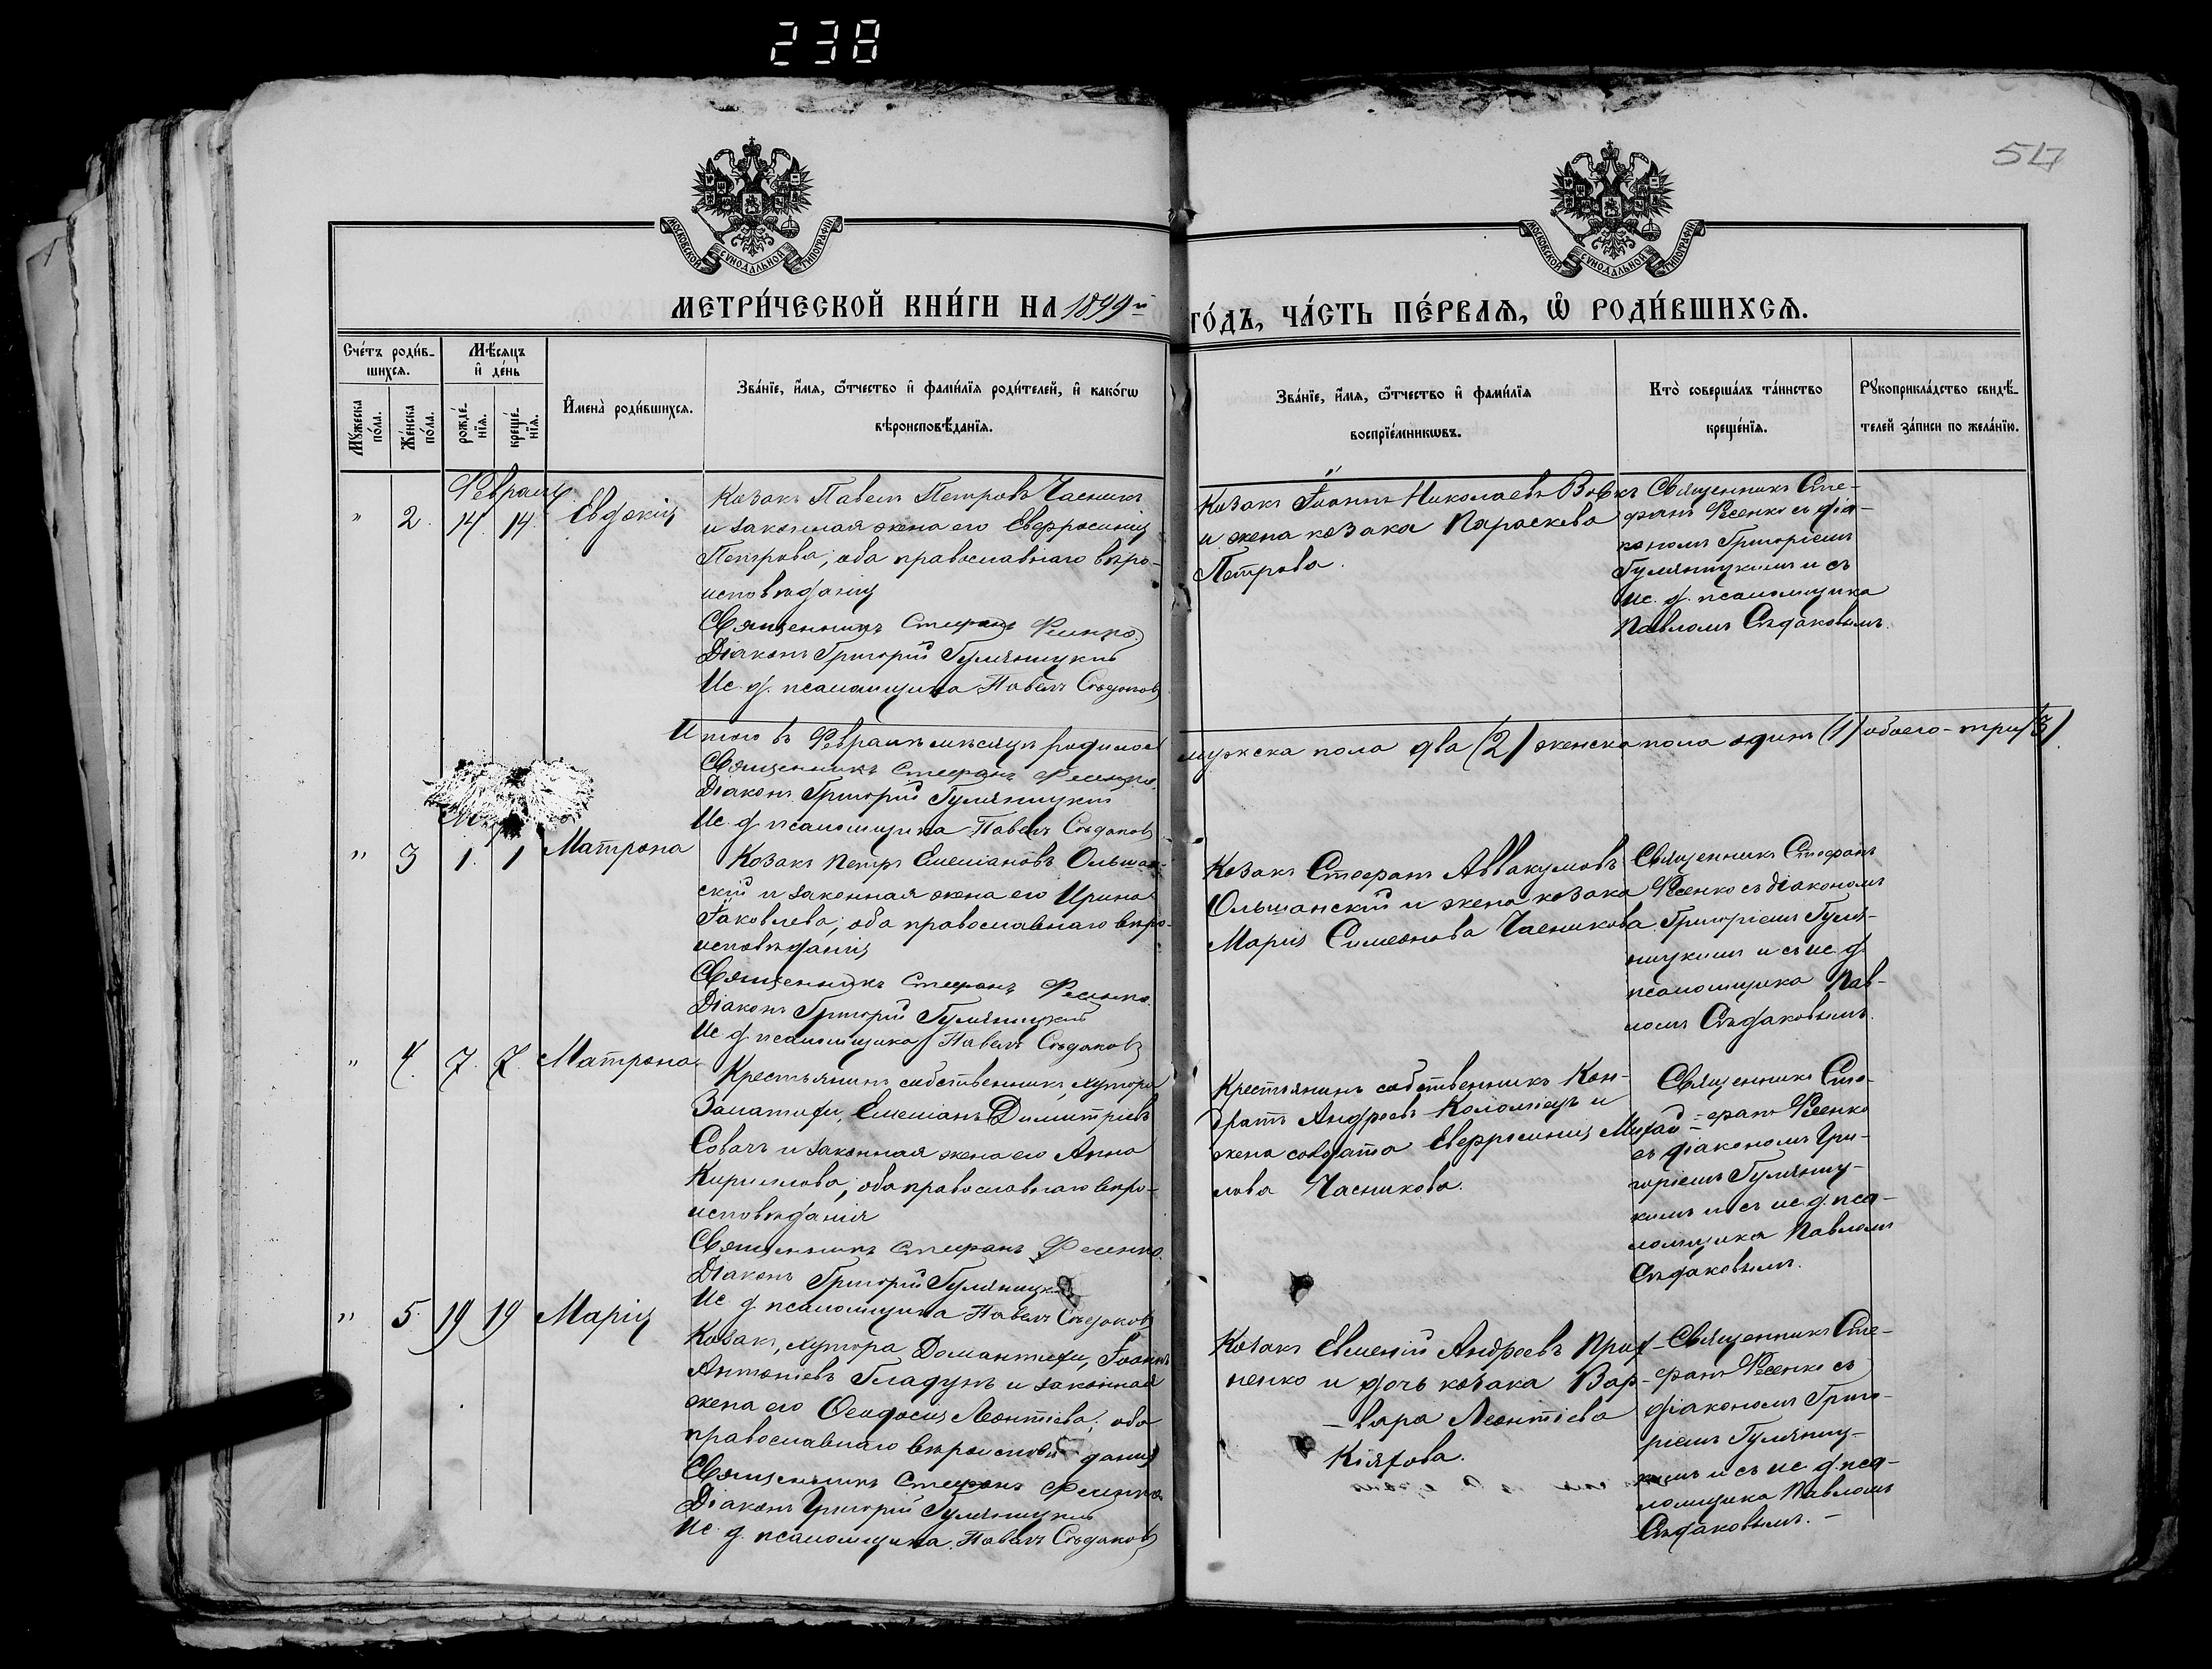 238
517
МОСКОВСКОЙ СѴНОДАЛЬНОЙ ТИПОГРАФІИ
МОСКОВСКОЙ СѴНОДАЛЬНОЙ ТИПОГРАФІИ
МЕТРИ́ЧЕСКОЙ КНИ́ГИ НА 1899й
ГО́ДЪ, ЧА́СТЬ ПЕ́РВАѦ, Ѽ РОДИ́ВШИХСѦ.
Сче́тъ роди́в-
шихсѧ.
Мꙋ́жеска по́ла.
Же́нска по́ла.
Мѣ́сѧцъ и҆ де́нь
рожде́-
нїѧ.
креще́-
нїѧ.
И҆мена̀ роди́вшихсѧ.
Зва́нїе, и҆́мѧ, ѻ҆́тчество и҆ фами́лїѧ роди́телей, и҆ како́гѡ
вѣроисповѣ́данїѧ.
Зва́нїе, и҆́мѧ, ѻ҆́тчество и҆ фами́лїѧ
воспрїе́мникѡвъ.
Кто̀ соверша́лъ та́инство
креще́нїѧ.
Рꙋкоприкла́дство свидѣ́-
телей за́писи по жела́нїю.
Февраль
" 2. 14. 14. Евдокія
Козакъ Павелъ Петровъ Часникъ
и законная жена его Евфросинія
Петрова; оба православнаго вѣро-
исповѣданія
Священникъ Стефанъ Фесенко.
Діаконъ Григорій Гуляницкій
Ис. д. псаломщика Павелъ Съдаковъ
Козакъ Іоаннъ Николаевъ Вовкъ
и жена козака Параскева
Петрова.
Священникъ Сте-
фанъ Фесенко съ діа-
кономъ Григоріемъ
Гуляницкимъ и съ
ис. д. псаломщика
Павломъ Съдаковымъ.
Итого въ Февралѣ мѣсяцѣ родилось
мужска пола два (2) женска пола одинъ (1) обоего - три (3)
Священникъ Стефанъ Фесенко.
Діаконъ Григорій Гуляницкій
Ис. д. псаломщика Павелъ Съдаковъ
" 3 1. 1 Матрона
Козакъ Петръ Емеліановъ Ольшан-
скій и законная жена его Ирина
Іаковлева; оба православнаго вѣро-
исповѣданія
Священникъ Стефанъ Фесенко.
Діаконъ Григорій Гуляницкій
Ис. д. псаломщика Павелъ Съдаковъ
Козакъ Стефанъ Аввакумовъ
Ольшанскій и жена козака
Марія Симеонова Часникова.
Священникъ Стефанъ
Фесенко съ діакономъ
Григоріемъ Гуля-
ницкимъ и съ ис. д.
псаломщика Пав-
ломъ Съдаковымъ.
" 4. 7. 7. Матрона
Крестьянинъ собственникъ, хутора
Заматихи, Емеліанъ Димитріевъ
Совачъ и законная жена его Анна
Кириллова; оба православнаго вѣро-
исповѣданія
Священникъ Стефанъ Фесенко.
Діаконъ Григорій Гуляницкій
Ис. д. псаломщика Павелъ Съдаковъ
Крестьянинъ собственникъ Кон-
дратъ Андреевъ Коломіецъ и
жена солдата Евфросинія Михай-
лова Часникова.
Священникъ Сте-
фанъ Фесенко
съ діакономъ Гри-
горіемъ Гуляниц-
кимъ и съ ис. д. пса-
ломщика Павломъ
Съдаковымъ.
" 5. 19 19 Марія
Козакъ, хутора Домантихи, Іоаннъ
Антоніевъ Гладунъ и законная
жена его Ѳеодосія Леонтіева; оба
православнаго вѣроисповѣданія
Священникъ Стефанъ Фесенко
Діаконъ Григорій Гуляницкій
Ис. д. псаломщика Павелъ Съдаковъ
Козакъ Евменій Андреевъ Прих-
ненко и дочь козака Вар-
вара Леонтіева
Кіяхова.
Священникъ Сте-
фанъ Фесенко съ
діакономъ Григо-
ріемъ Гуляниц-
кимъ и съ ис. д. пса-
ломщика Павломъ
Съдаковымъ. -